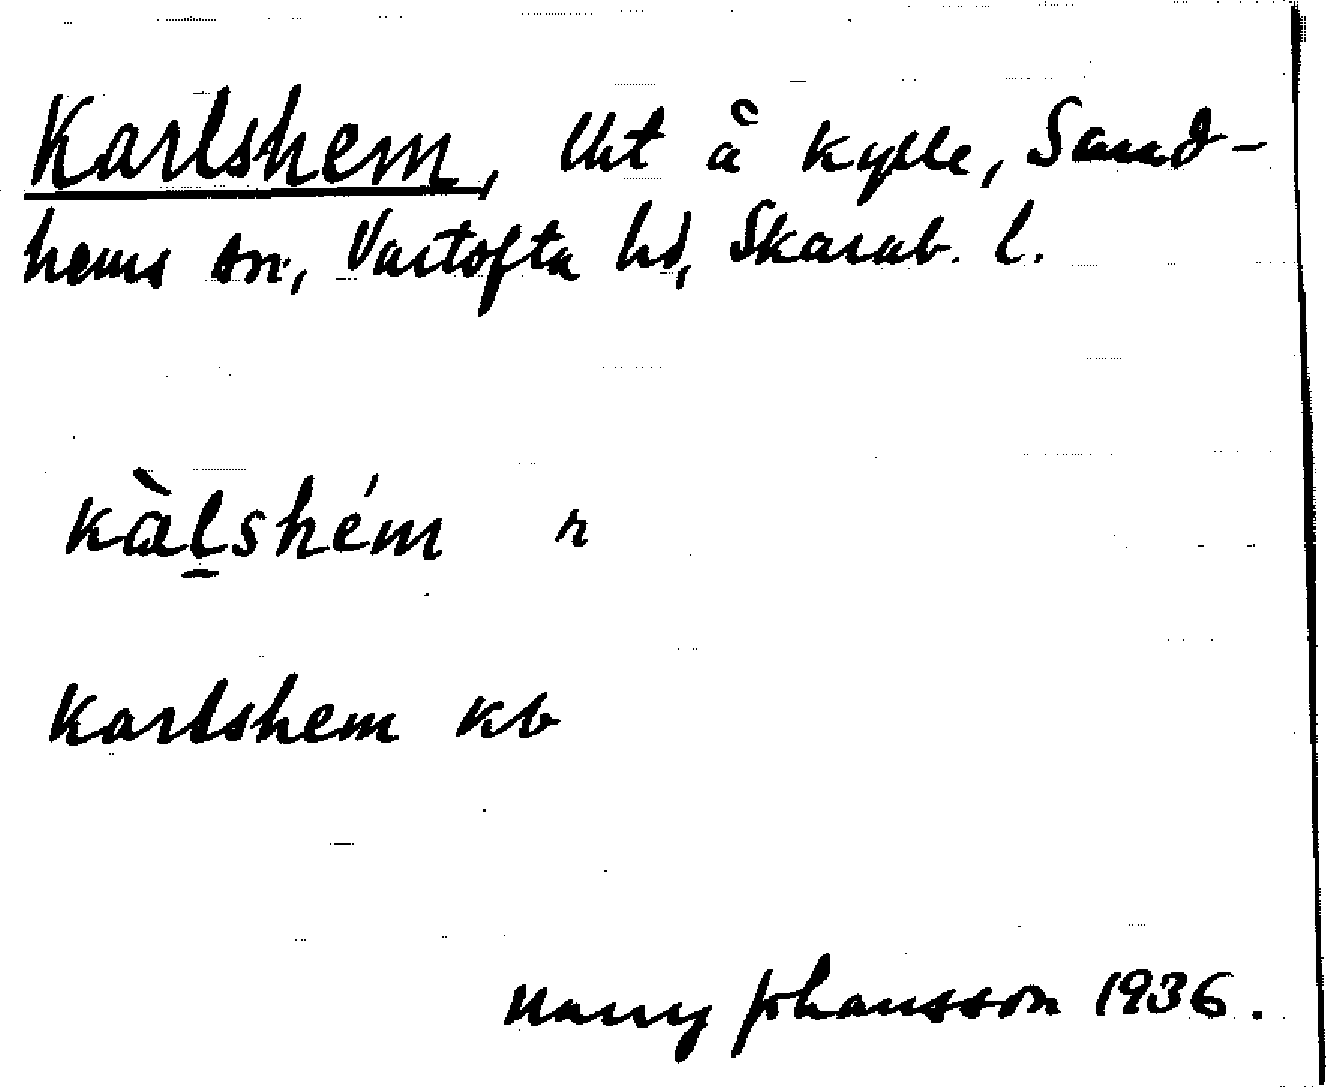 Karlshem, Uht å Kylle, Sand-
hems sn, Vartofta hd, Skarab. l.
kàlshém n
Karlshem kb
Harry Johansson 1936.